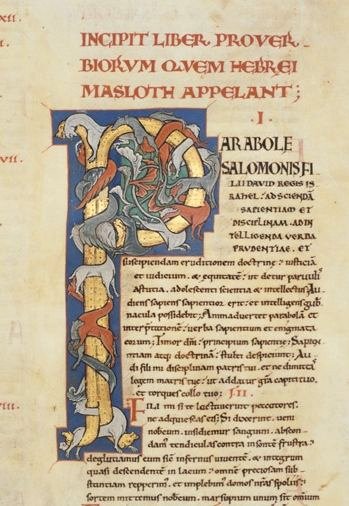 XII.
I.
INCIPIT LIBER PROVER
BIORVM QVEM HEBREI
MASLOTH APPELANT;
·I·
PARABOLE
SALOMONIS FI
LII DAVID REGIS IS
RAHEL. AD SCIENDĀ
SAPIENTIAM ET
DISCIPLINAM. AD IN
TELLIGENDA VERBA
PRVDENTIAE. ET
VII.
suscipiendam eruditionem doctrinę: iusticiā
et iudiciū. & equitatē: ut detur paruulis
astutia. adolescenti scientia & intellectus. Au
diens sapiens sapientior erit: et intelligens gub
nacula possidebit; Animaduertet parabolā et
interp̄tationē: uerba sapientium et enigmata
eorum; Timor dn̄i: principium sapientię; Sapien
tiam atq; doctrinā: stulti despiciunt; Au
di fili mi disciplinam patris tui. et ne dimittas
legem matris tuę: ut addatur gr̄a capiti tuo.
et torques collo tuo; ·I·II·
VIII.
Fili mi si te lactauerint peccatores.
ne adquiescas eis; Si dixerint. ueni
nobcum. insidiemur sanguini. abscon
dam tendiculas contra insontē frustra:
deglutiamus eum sic̄ infernus uiuentē. & integrum
quasi descendentē in lacum: omnē preciosam sub
stantiam repperim̄. et implebim̄ domos nr̄as spoliis:
sortem mitte nobcum. marsupium unum sit omnium